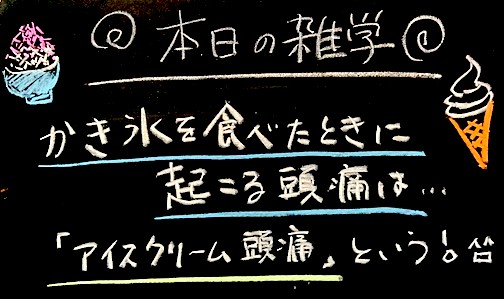 本日の雑学
かき氷を食べたときに
起こる頭痛は…
「アイスクリーム頭痛」という!笑